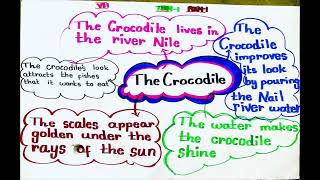 TERM-1
The Crocodile lives in
the river Nile
The crocodile's look
attracts the fishes
that it wants to eat
The Crocodile
The
Crocodile
improves
its look
by pouring
the Nail
river water
The scales appear
golden under the
rays of the sun
The water makes
the crocodile
shine